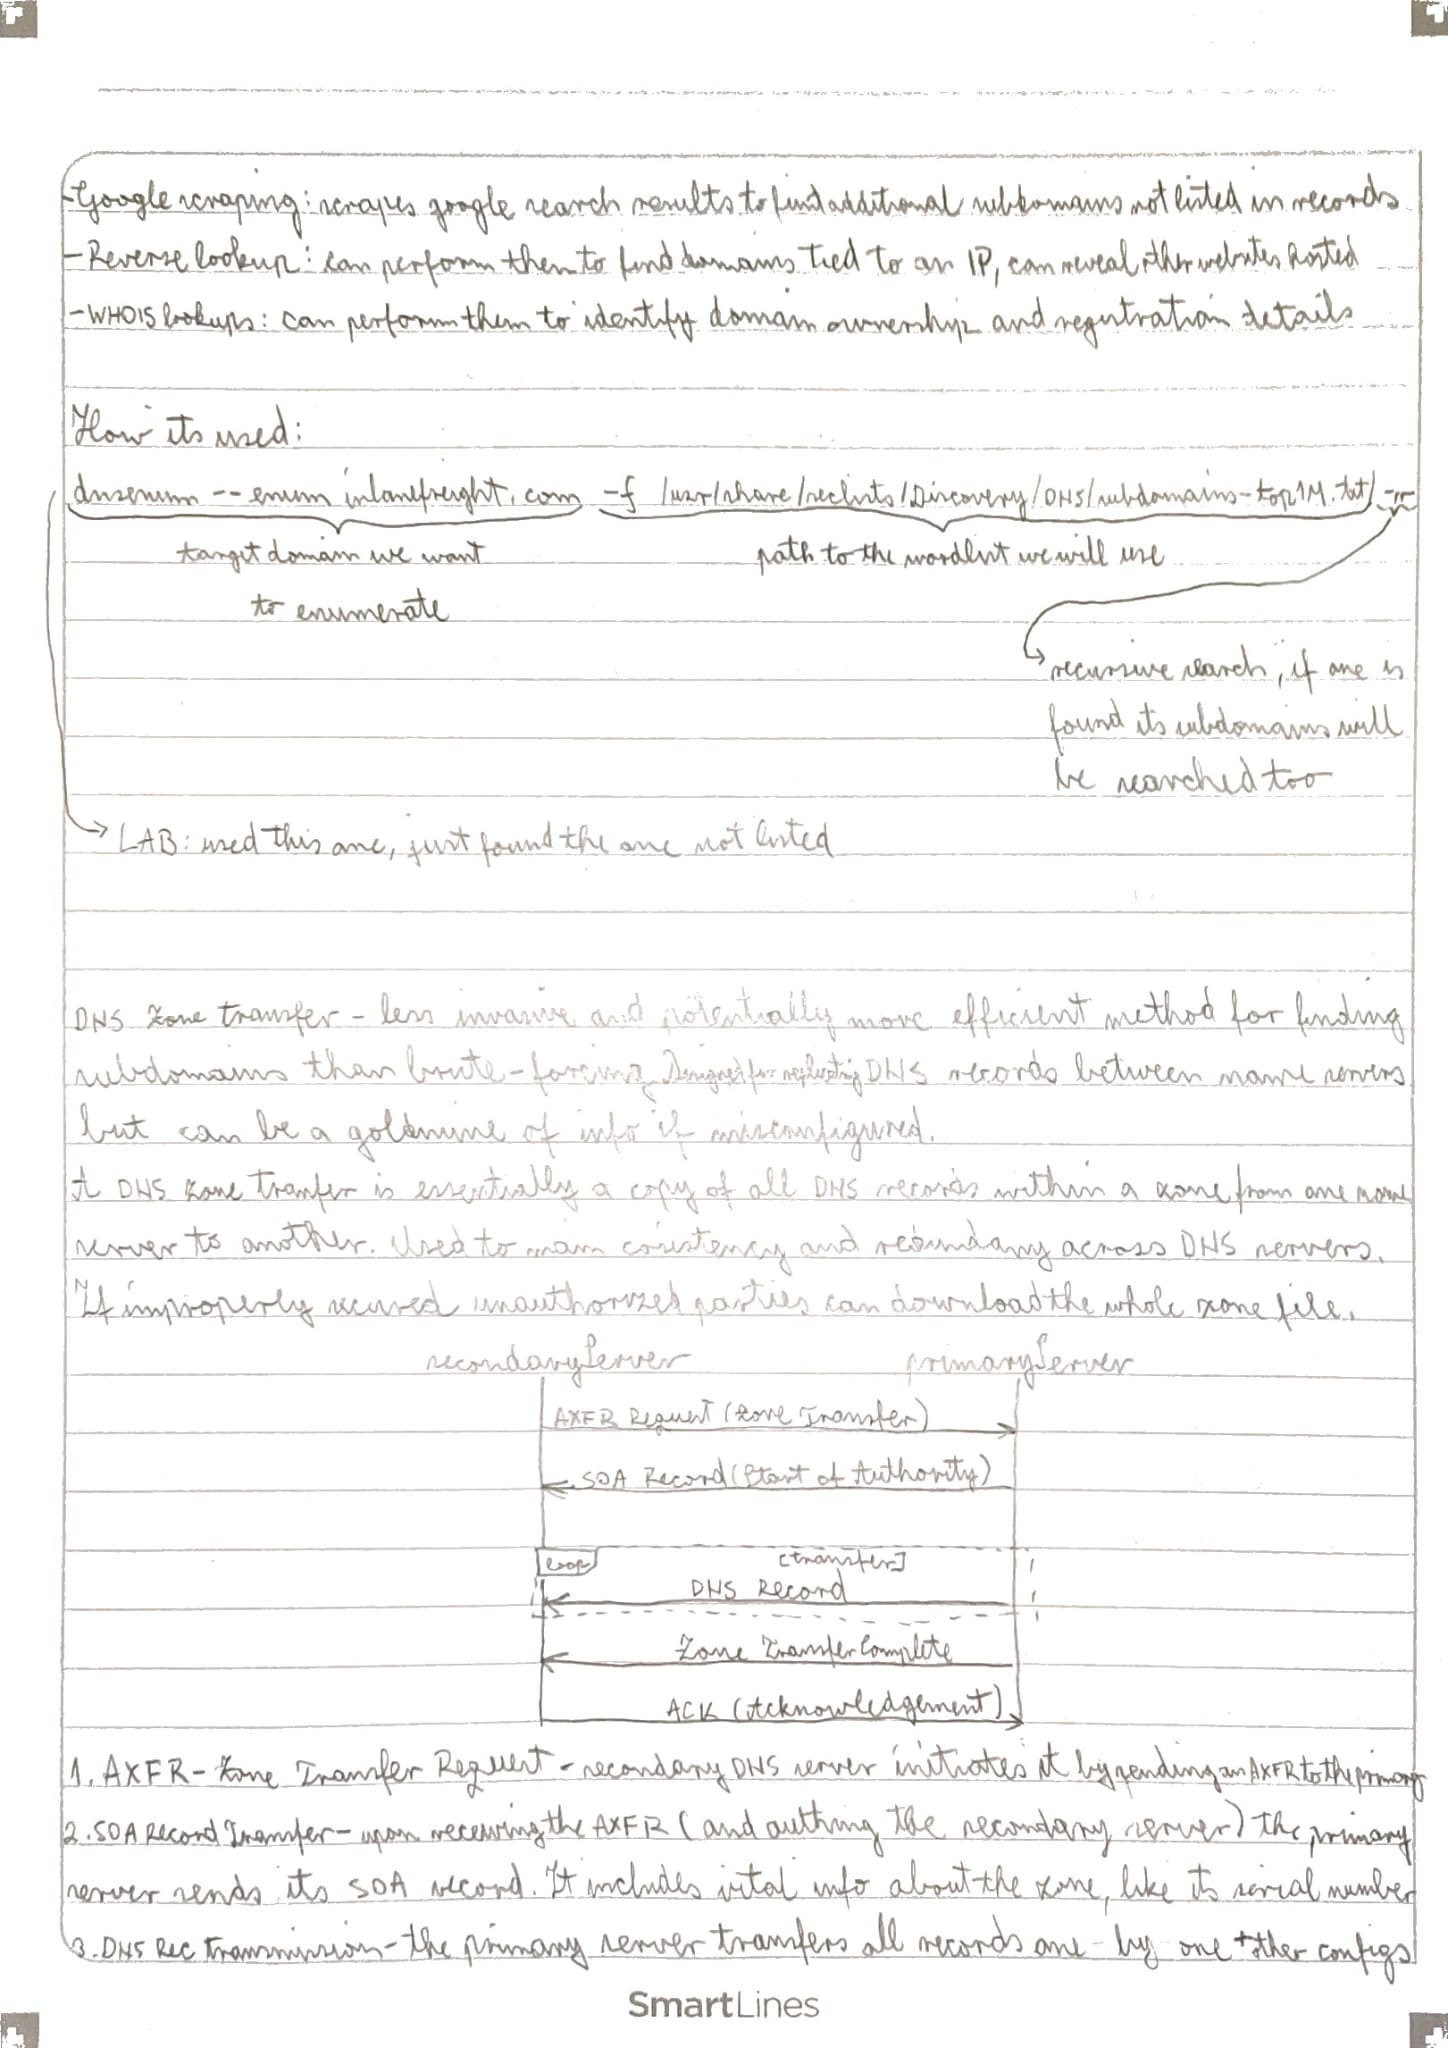 -Google scraping: scrapes google search results to find additional subdomains not listed in records
-Reverse lookup: can perform them to find domains tied to an IP, can reveal other websites hosted
-WHOIS lookups: can perform them to identify domain ownership and registration details
How its used:
dnsenum --enum inlanefreight.com -f /usr/share/seclists/Discovery/DNS/subdomains-top1M.txt -r
target domain we want path to the wordlist we will use
to enumerate
recursive search, if one is
found its subdomains will
be searched too
LAB: used this one, just found the one not listed
DNS zone transfer - less invasive and potentially more efficient method for finding
subdomains than brute-forcing. Designed for replicating DNS records between name servers
but can be a goldmine of info if misconfigured.
A DNS zone tranfer is essentially a copy of all DNS records within a zone from one name
server to another. Used to main cosistency and redundany across DNS servers.
If improperly secured unauthorized parties can download the whole zone file.
secondaryServer primaryServer
AXFR Request (Zone Transfer)
SOA Record (Start of Authority)
loop [transfer]
DNS Record
Zone Transfer Complete
ACK (Acknowledgement)
1. AXFR - Zone Transfer Request - secondary DNS server initiates it by sending an AXFR to the primary
2. SOA Record Transfer - upon receiving the AXFR (and authing the secondary server) the primary
server sends its SOA record. It includes vital info about the zone, like its serial number
3. DNS Rec Transmission - the primary server transfers all records one-by one + other configs
SmartLines